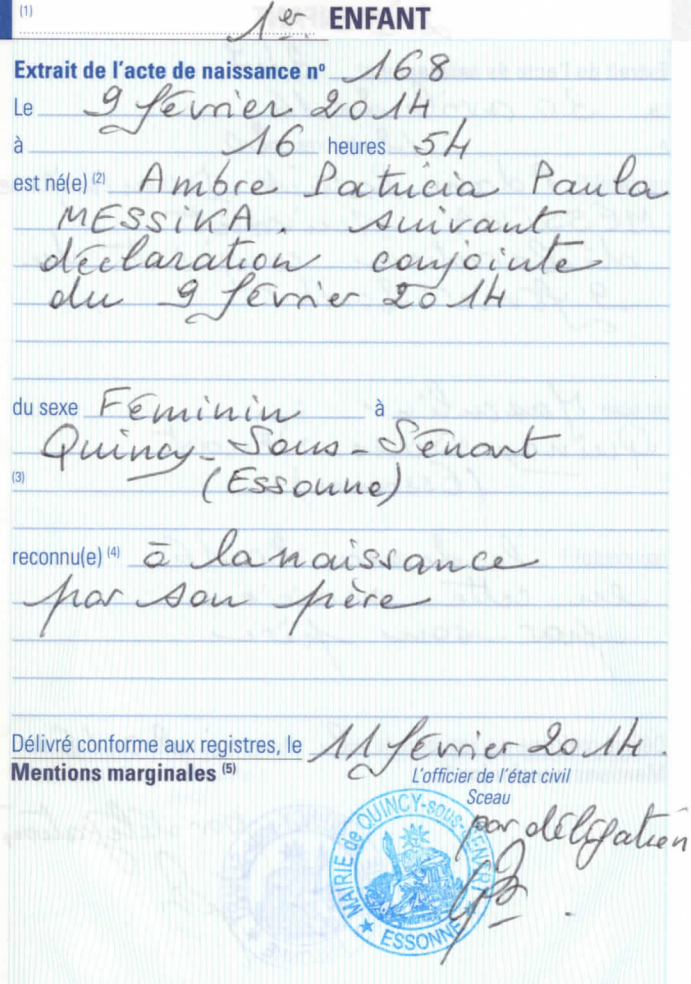 (1) 1er ENFANT
Extrait de l'acte de naissance nº 168
Le 9 février 2014
à 16 heures 54
est né(e) (2) Ambre Patricia Paula
MESSIKA. suivant
déclaration conjointe
du 9 février 2014
du sexe Féminin à
Quincy-Sous-Sénart
(3) (Essonne)
reconnu(e) (4) à la naissance
par son père
Délivré conforme aux registres, le 11 février 2014.
Mentions marginales (5) L'officier de l'état civil
Sceau
par délégation
MAIRIE de QUINCY-sous-SENART
ESSONNE